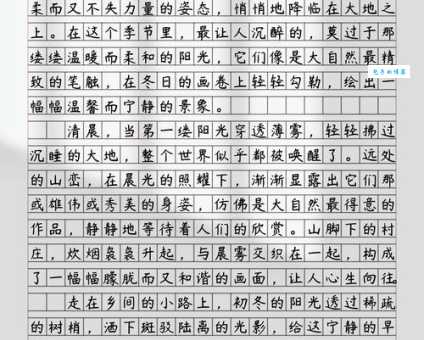 柔而又不失力量的姿态，悄悄地降临在大地之
上。在这个季节里，最让人沉醉的，莫过于那
缕缕温暖而柔和的阳光，它们像是大自然最精
致的笔触，在冬日的画卷上轻轻勾勒，绘出一
幅幅温馨而宁静的景象。
清晨，当第一缕阳光穿透薄雾，轻轻拂过
沉睡的大地，整个世界似乎都被唤醒了。远处
的山峦，在晨光的照耀下，渐渐显露出它们那
或雄伟或秀美的身姿，仿佛是大自然最得意的
作品，静静地等待着人们的欣赏。山脚下的村
庄，炊烟袅袅升起，与晨雾交织在一起，构成
了一幅幅朦胧而又和谐的画面，让人心生向往。
走在乡间的小路上，初冬的阳光透过稀疏
的树梢，洒下斑驳陆离的光影，给这宁静的早